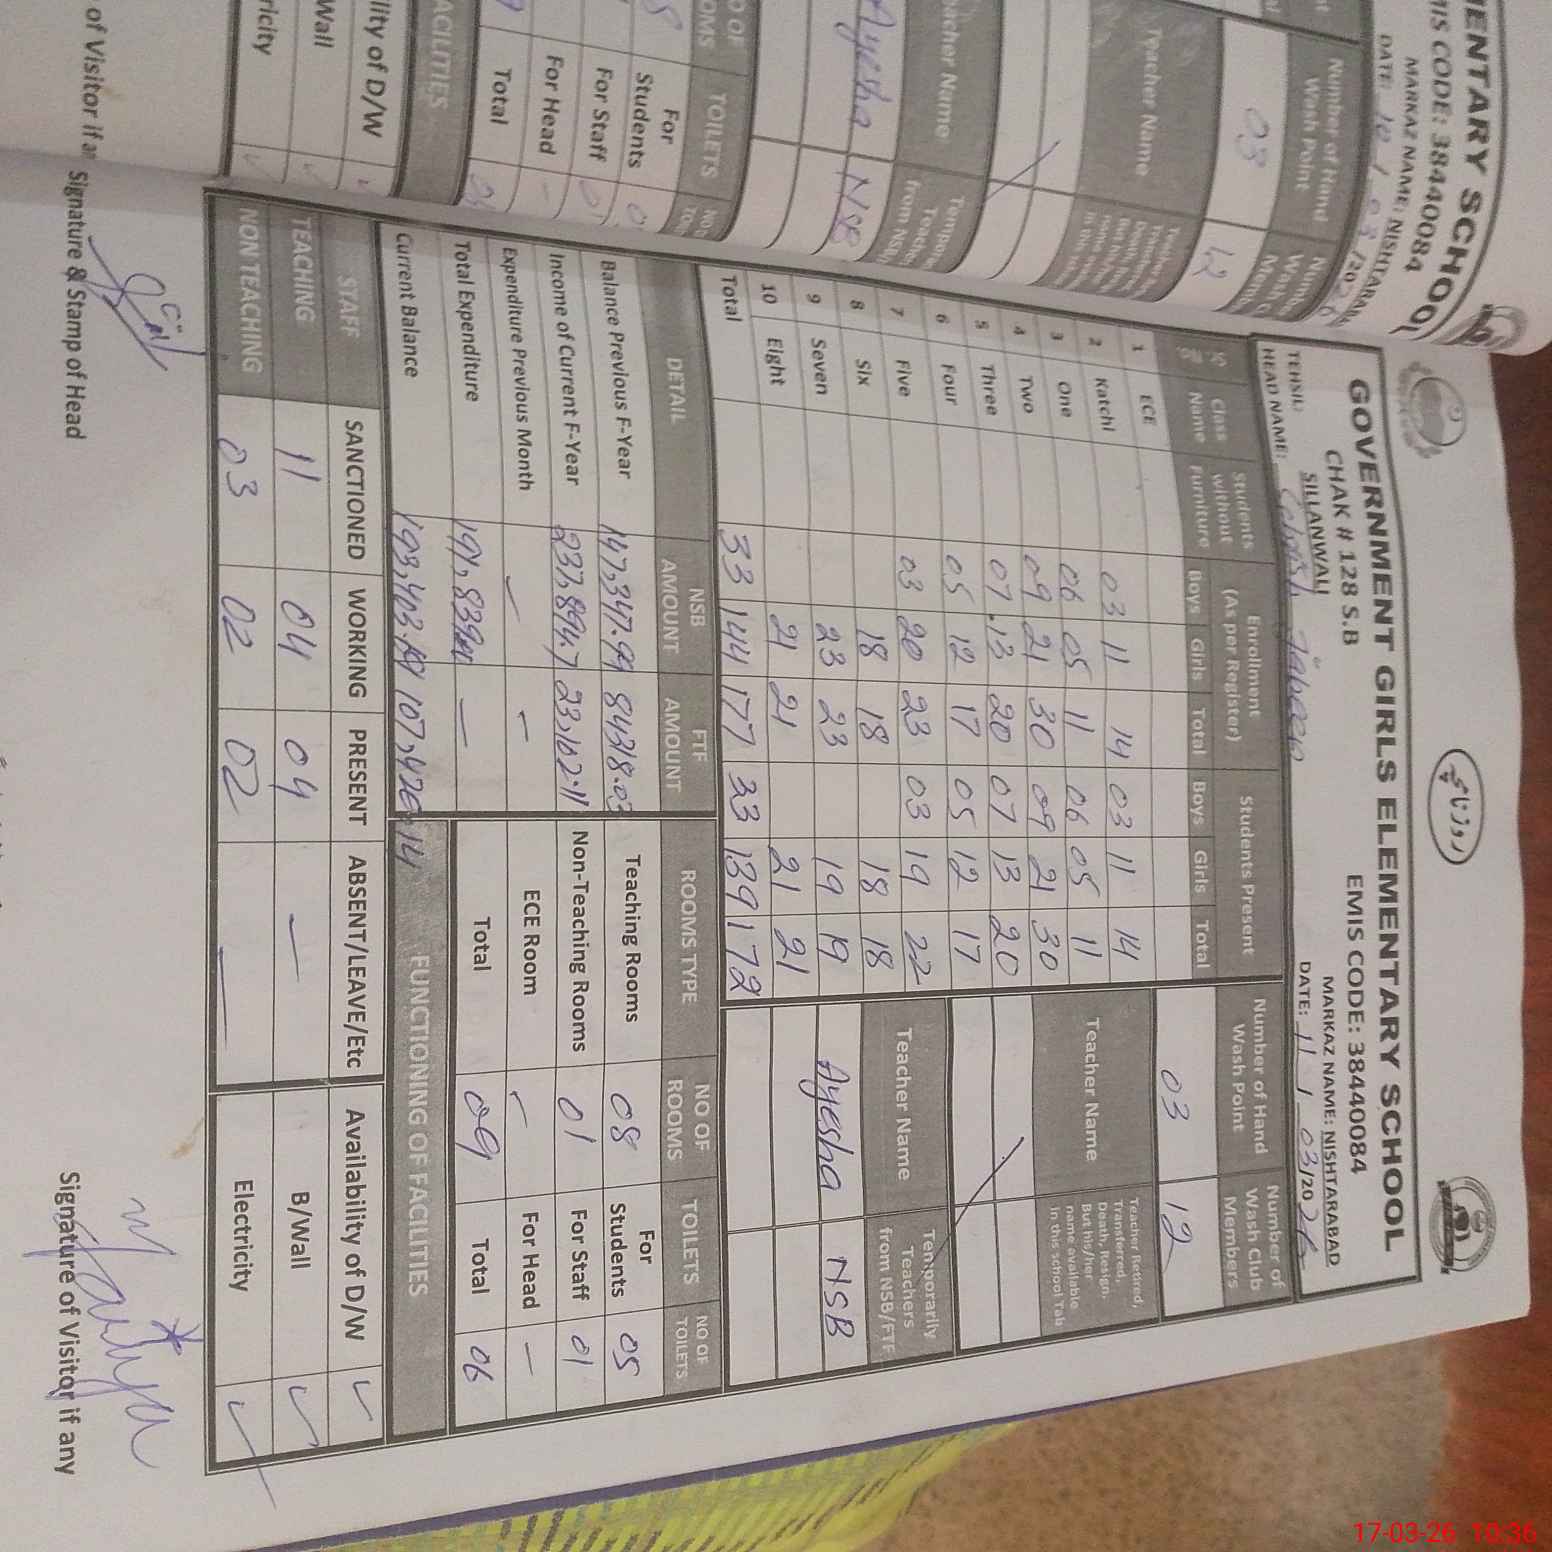 روزنامچہ
GOVERNMENT GIRLS ELEMENTARY SCHOOL
CHAK # 128 S.B EMIS CODE: 38440084
TEHSIL: SILLANWALI MARKAZ NAME: NISHTARABAD
HEAD NAME: DATE: 11 / 03/2026
Sr No Class Name Students without Furniture Enrollment (As per Register) Students Present Number of Hand Wash Point Number of Wash Club Members
Boys Girls Total Boys Girls Total
03 12
1 ECE
2 Katchi 03 11 14 03 11 14
3 One 06 05 11 06 05 11
4 Two 09 21 30 09 21 30
5 Three 07 13 20 07 13 20
6 Four 05 12 17 05 12 17
7 Five 03 20 23 03 19 22
8 Six 18 18 18 18
9 Seven 23 23 19 19
10 Eight 21 21 21 21
Total 33 144 177 33 139 172
Teacher Name Teacher Retired, Transferred, Death, Resign. But his/her name available in this school Tab
Teacher Name Temporarily Teachers from NSB/FTF
Ayesha NSB
DETAIL NSB AMOUNT FTF AMOUNT ROOMS TYPE NO OF ROOMS TOILETS NO OF TOILETS
Balance Previous F-Year 147,347.99 84318.03 Teaching Rooms 08 For Students 05
Income of Current F-Year 237,894.7 23,102.11 Non-Teaching Rooms 01 For Staff 01
Expenditure Previous Month – – ECE Room – For Head –
Total Expenditure – Total 09 Total 06
Current Balance 107,420.14 FUNCTIONING OF FACILITIES
STAFF SANCTIONED WORKING PRESENT ABSENT/LEAVE/Etc Availability of D/W ✓
TEACHING 11 04 04 – B/Wall ✓
NON TEACHING 03 02 02 – Electricity ✓
Signature & Stamp of Head Signature of Visitor if any
MENTARY SCHOOL
MIS CODE: 38440084
MARKAZ NAME: NISHTARABAD
DATE: 10 / 03 /2026
Number of Hand Wash Point
03 12
Teacher Name
Teacher Name
Ayesha NSB
TOILETS
For Students
For Staff
For Head
Total
of Visitor if any
17-03-26 10:36